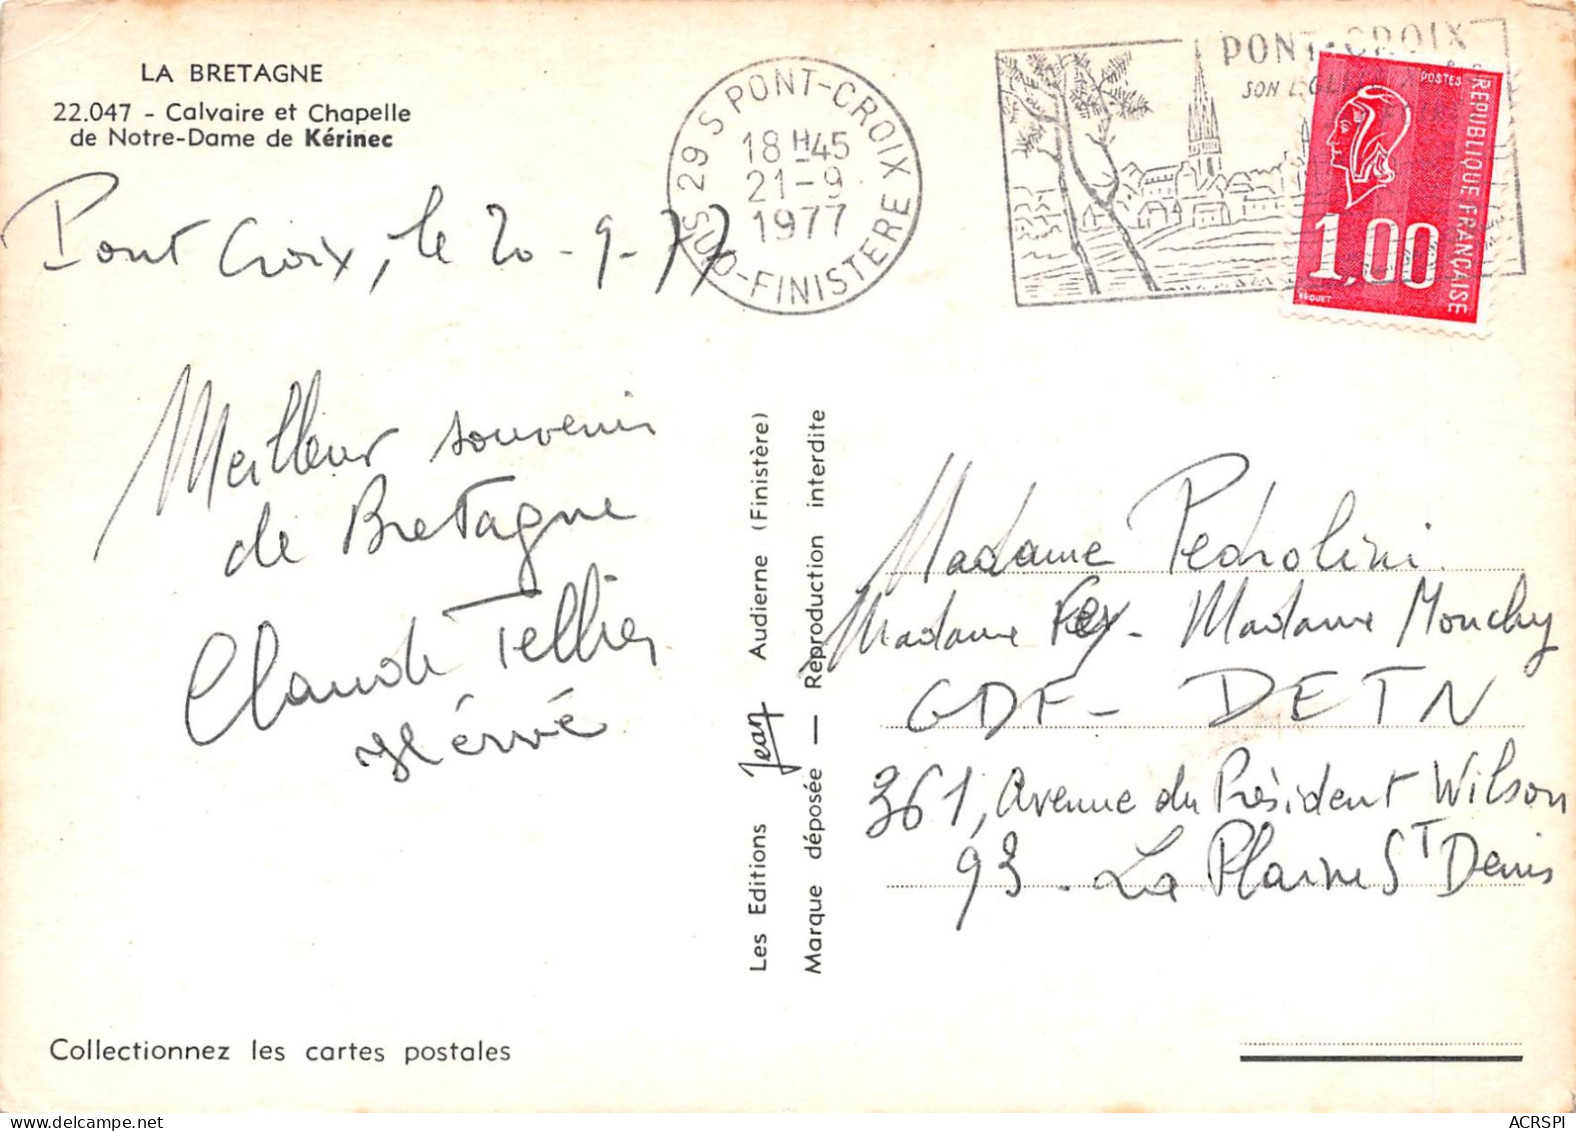 LA BRETAGNE
22.047 - Calvaire et Chapelle
de Notre-Dame de Kérinec
Pont Croix, le 20-9-77
Meilleur souvenir
de Bretagne
Claude Tellier
Hervé
Collectionnez les cartes postales
Les Editions Jean Audierne (Finistère)
Marque déposée — Reproduction interdite
29 S PONT-CROIX
18 H 45
21-9
1977
SUD-FINISTERE
PONT-CROIX
SON
POSTES
REPUBLIQUE FRANÇAISE
1,00
BEQUET
Madame Pedrolini.
Madame Fey - Madame Monchy
GDF - DETN
361, Avenue du Président Wilson
93 - La Plaine St Denis
ACRSPI